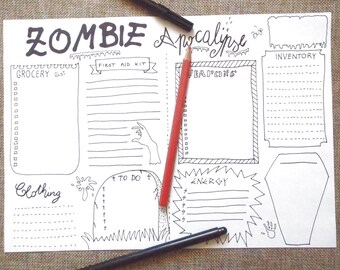 ZOMBIE Apocalypse
GROCERY List
FIRST AID KIT
WEAPONS
INVENTORY
Clothing
TO DO
ENERGY